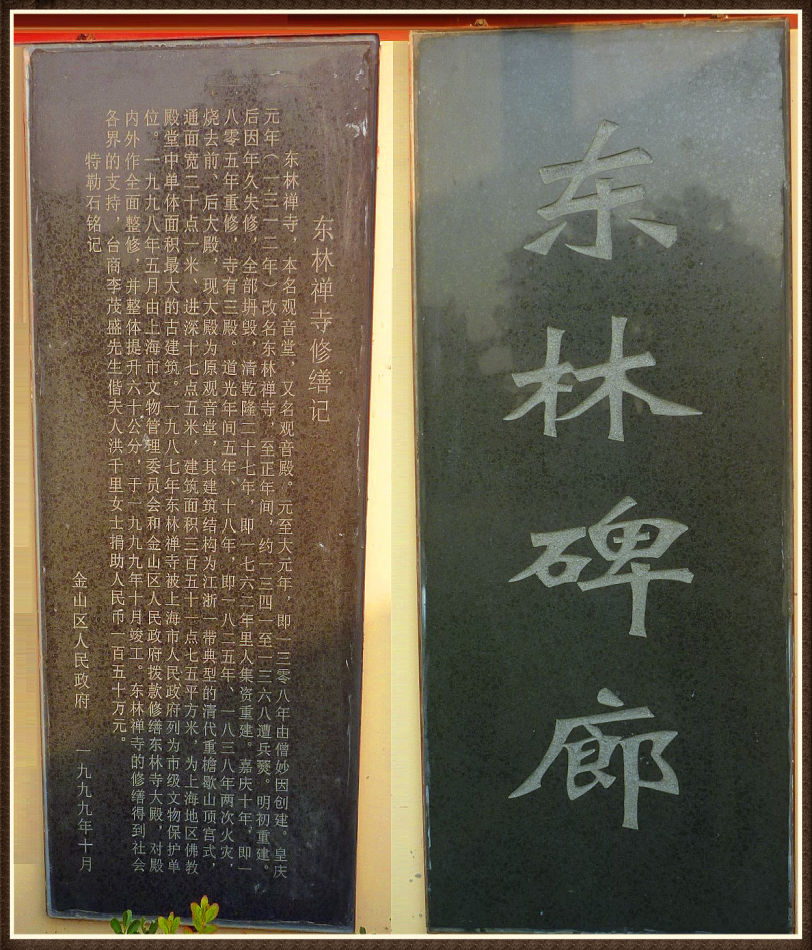 东林碑廊
东林禅寺修缮记
东林禅寺，本名观音堂，又名观音殿。元至大元年，即一三零八年由僧妙因创建。皇庆
元年（一三一二年）改名东林禅寺，至正年间，约一三四一至一三六八遭兵燹。明初重建。
后因年久失修，全部坍毁，清乾隆二十七年，即一七六二年里人集资重建。嘉庆十年，即一
八零五年重修，寺有三殿。道光年间五年、十八年，即一八二五年、一八三八年两次火灾，
烧去前、后大殿，现大殿为原观音堂，其建筑结构为江浙一带典型的清代重檐歇山顶宫式，
通面宽二十点一米、进深十七点五米，建筑面积三百五十一点七五平方米，为上海地区佛教
殿堂中单体面积最大的古建筑。一九八七年东林禅寺被上海市人民政府列为市级文物保护单
位。一九九八年五月由上海市文物管理委员会和金山区人民政府拨款修缮东林寺大殿，对殿
内外作全面整修，并整体提升六十公分，于一九九九年十月竣工。东林禅寺的修缮得到社会
各界的支持，台商李茂盛先生偕夫人洪千里女士捐助人民币一百五十万元。
特勒石铭记
金山区人民政府 一九九九年十月